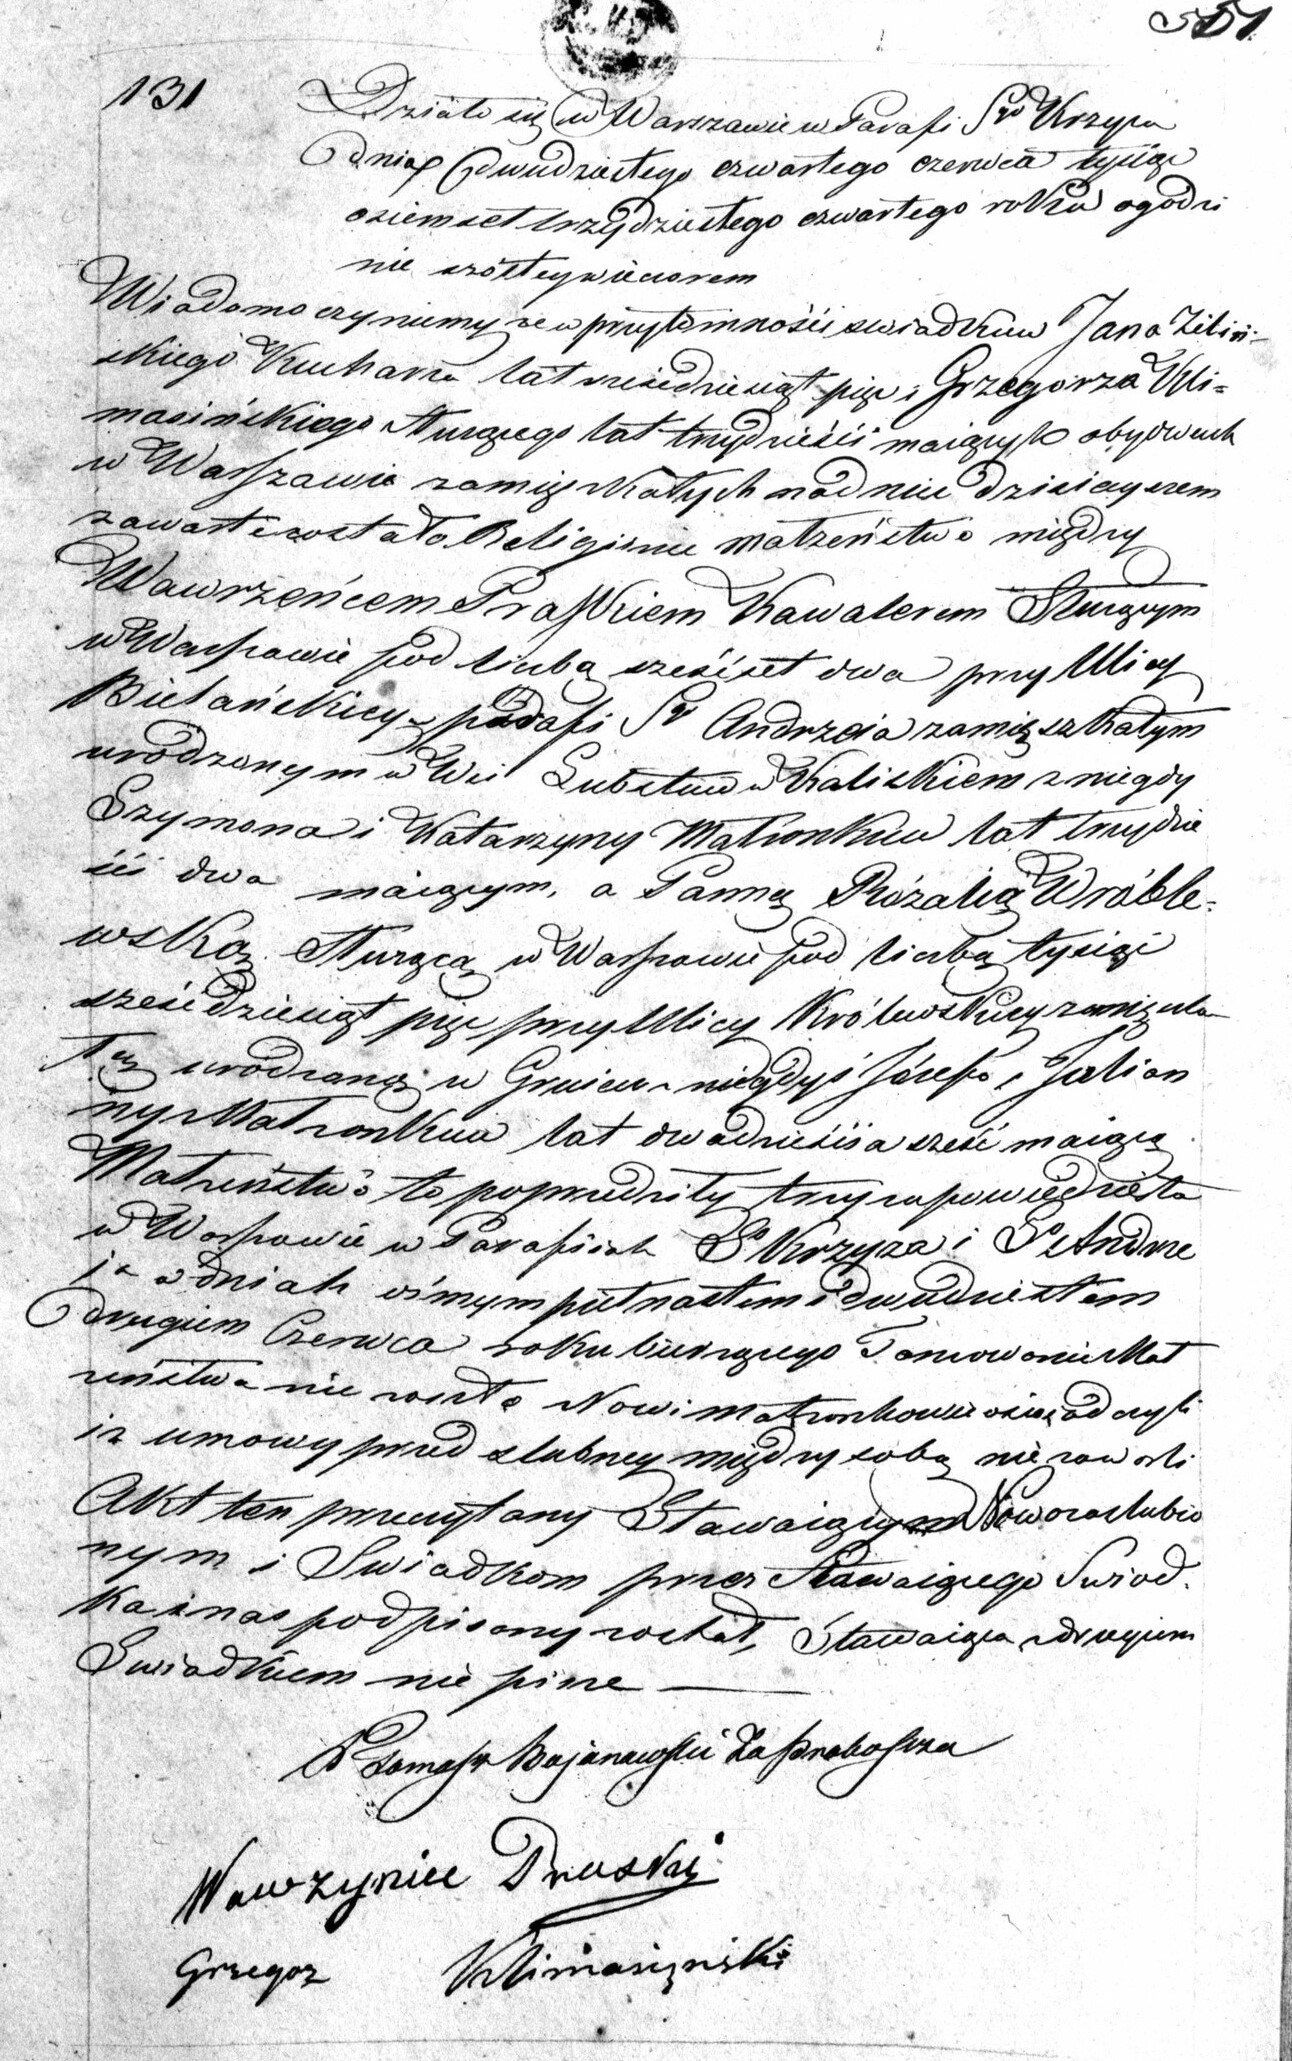 551
131
Działo się w Warszawie w Parafi Sgo Krzyża
dnia dwudziestego czwartego czerwca tysiąc
osiemset trzydziestego czwartego roku ogodzi
nie szóstey wieczorem
Wiadomo czyniemy że w przytomności swiadków Jana Zieliń-
skiego Kucharza lat sześcdziesiąt pięc i Grzegorza Kli=
masińskiego służącego lat trzydzieści maiących obydwuch
w Warszawie zamięszkałych na dniu dzisieyszem
zawarte zostało Religijnie małżeństwo między
Wawrzeńcem Praskiem Kawalerem Służącym
w Warszawie pod liczbą sześćset dwa przy Ulicy
Bielańskiey w parafi Sgo Andrzeia zamięszkałym
urodzonym w Wsi Lubstów w Kaliskiem z niegdy
Szymona i Katarzyny Małżonków lat trzydzie
ści dwa maiącym, a Panną Rózalią Wróble=
wską Służącą w Warszawie pod liczbą tysiąc
sześćdziesiąt pięc przy Ulicy Królewskiey zamięszka
łą urodzoną w z niegdyś Józefa i Julian
ny Małżonków lat dwadzieścia sześć maiącą
Małżeństwo to poprzedziły trzy zapowiedzie ta
w Warszawie w Parafiiach S Krzyża i S Andrze
ja w dniach osmym pietnastem i dwudziestem
drugiem Czerwca roku bieżącego Tamowanie Mał
żeństwa nie zaszło Nowi małżonkowie oświadczyli
iż umowy przed slubney między sobą nie zawarli
Akt ten przeczytany Stawaiącym Nowozaslubio
nym i Swiadkom przez Stawaiącego Swiad.
ka i nas podpisany został, Stawaiąca z drugiem
Swiadkiem nie pisze
X Tomasz Bojanowski Za Proboszcza
Wawrzyniec Pruski
Grzegorz Klimasiynski